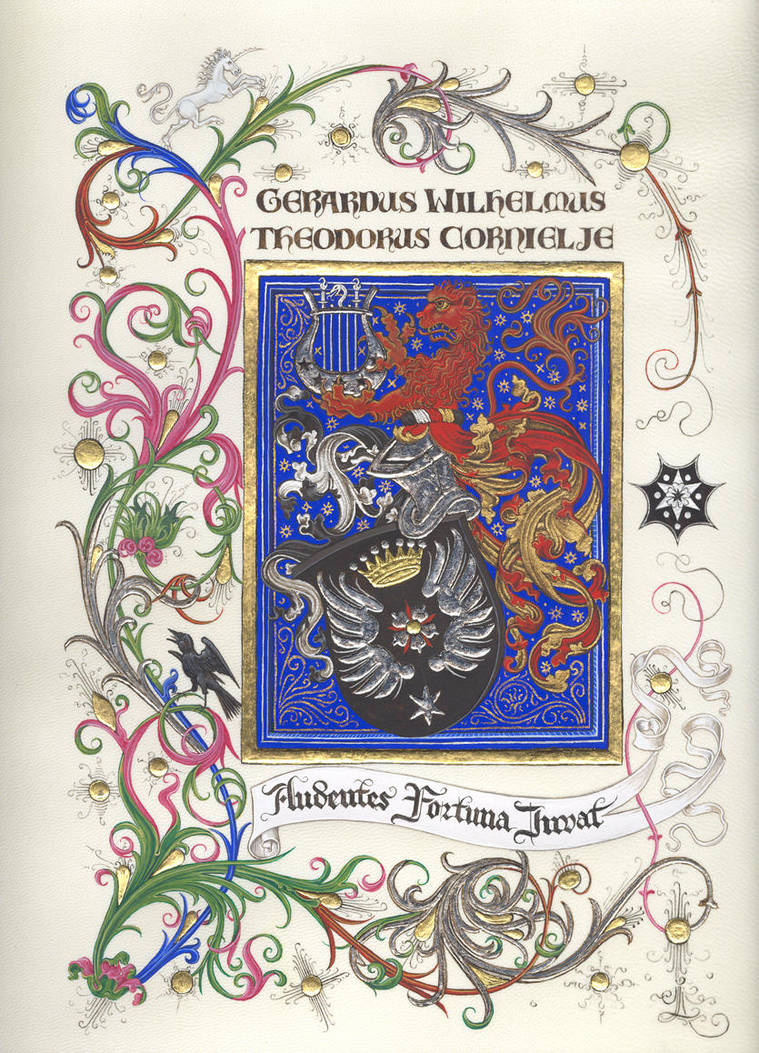 Gerardus Wilhelmus
Theodorus Cornielje
Audentes Fortuna Iuvat